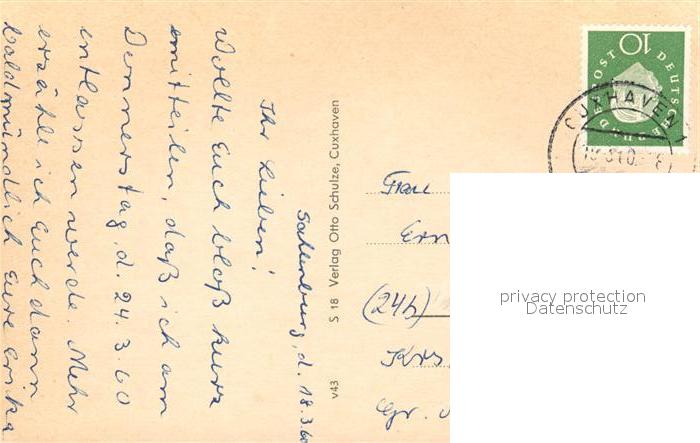 Sahlenburg, d. 18.3.60
Ihr Lieben!
Wollte Euch bloß kurz
mitteilen, daß ich am
Donnerstag, d. 24.3.60
entlassen werde. Mehr
erzähle ich Euch dann
bald mündlich Eure Erika
S 18 Verlag Otto Schulze, Cuxhaven
v43
10
DEUTSCHE BUNDESPOST
CUXHAVEN
Frau
Ern
(24b)
Krs.
Gr.
privacy protection
Datenschutz